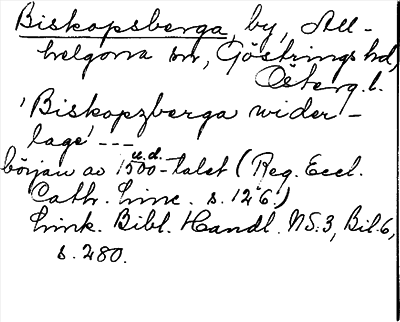 Biskopsberga, by, All-
helgona sn, Göstrings hd,
Österg. l.
'Biskopzberga wider-
lage' ---
u.d.
början av 1500-talet (Reg. Eccl.
Cath. Linc. s. 126.)
Link. Bibl. Handl. NS. 3, Bil. 6,
s. 280.